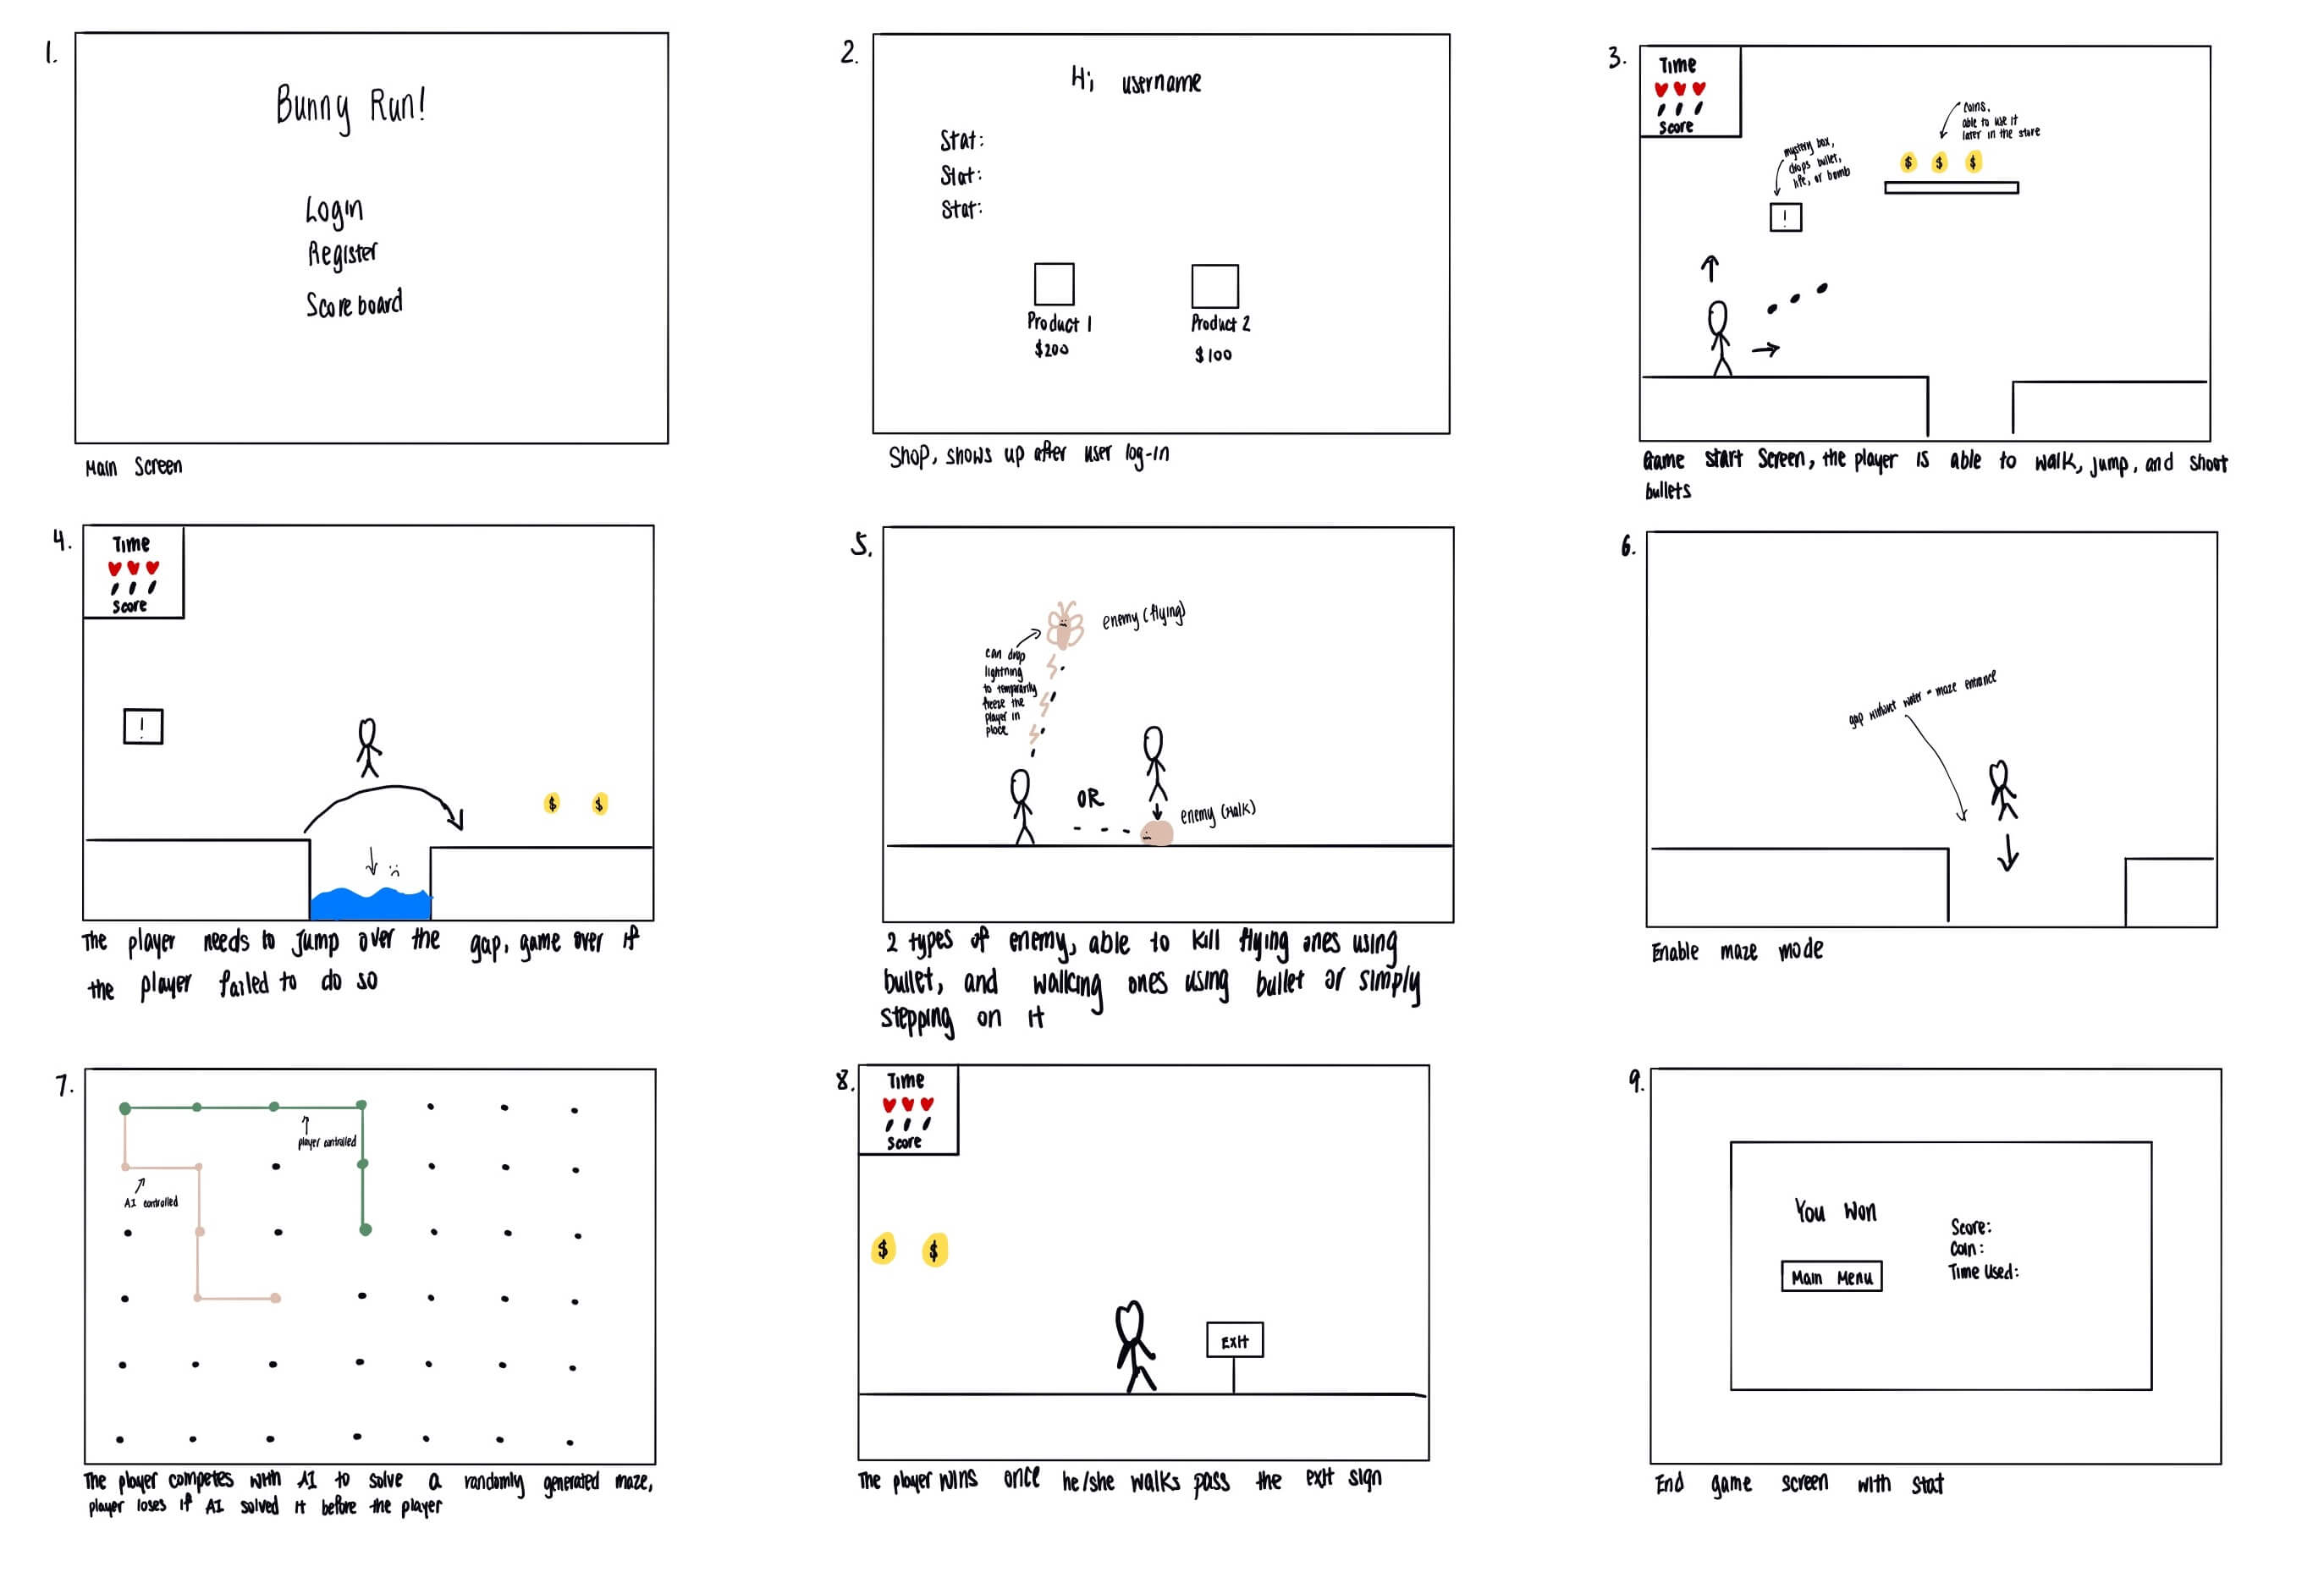 1.
Bunny Run!
Login
Register
Scoreboard
Main Screen
2.
Hi, username
Stat:
Stat:
Stat:
Product 1
$200
Product 2
$100
Shop, shows up after user log-in
3.
Time
Score
mystery box,
drops bullet,
life, or bomb
!
coins.
able to use it
later in the store
$ $ $
Game start screen, the player is able to walk, jump, and shoot
bullets
4.
Time
Score
!
:(
$ $
The player needs to jump over the gap, game over if
the player failed to do so
5.
enemy (flying)
can drop
lightning
to temporarily
freeze the
player in
place
OR
enemy (walk)
2 types of enemy, able to kill flying ones using
bullet, and walking ones using bullet or simply
stepping on it
6.
gap without water = maze entrance
Enable maze mode
7.
player controlled
AI controlled
The player competes with AI to solve a randomly generated maze,
player loses if AI solved it before the player
8.
Time
Score
$ $
EXIT
The player wins once he/she walks pass the exit sign
9.
You Won
Main Menu
Score:
Coin:
Time Used:
End game screen with stat